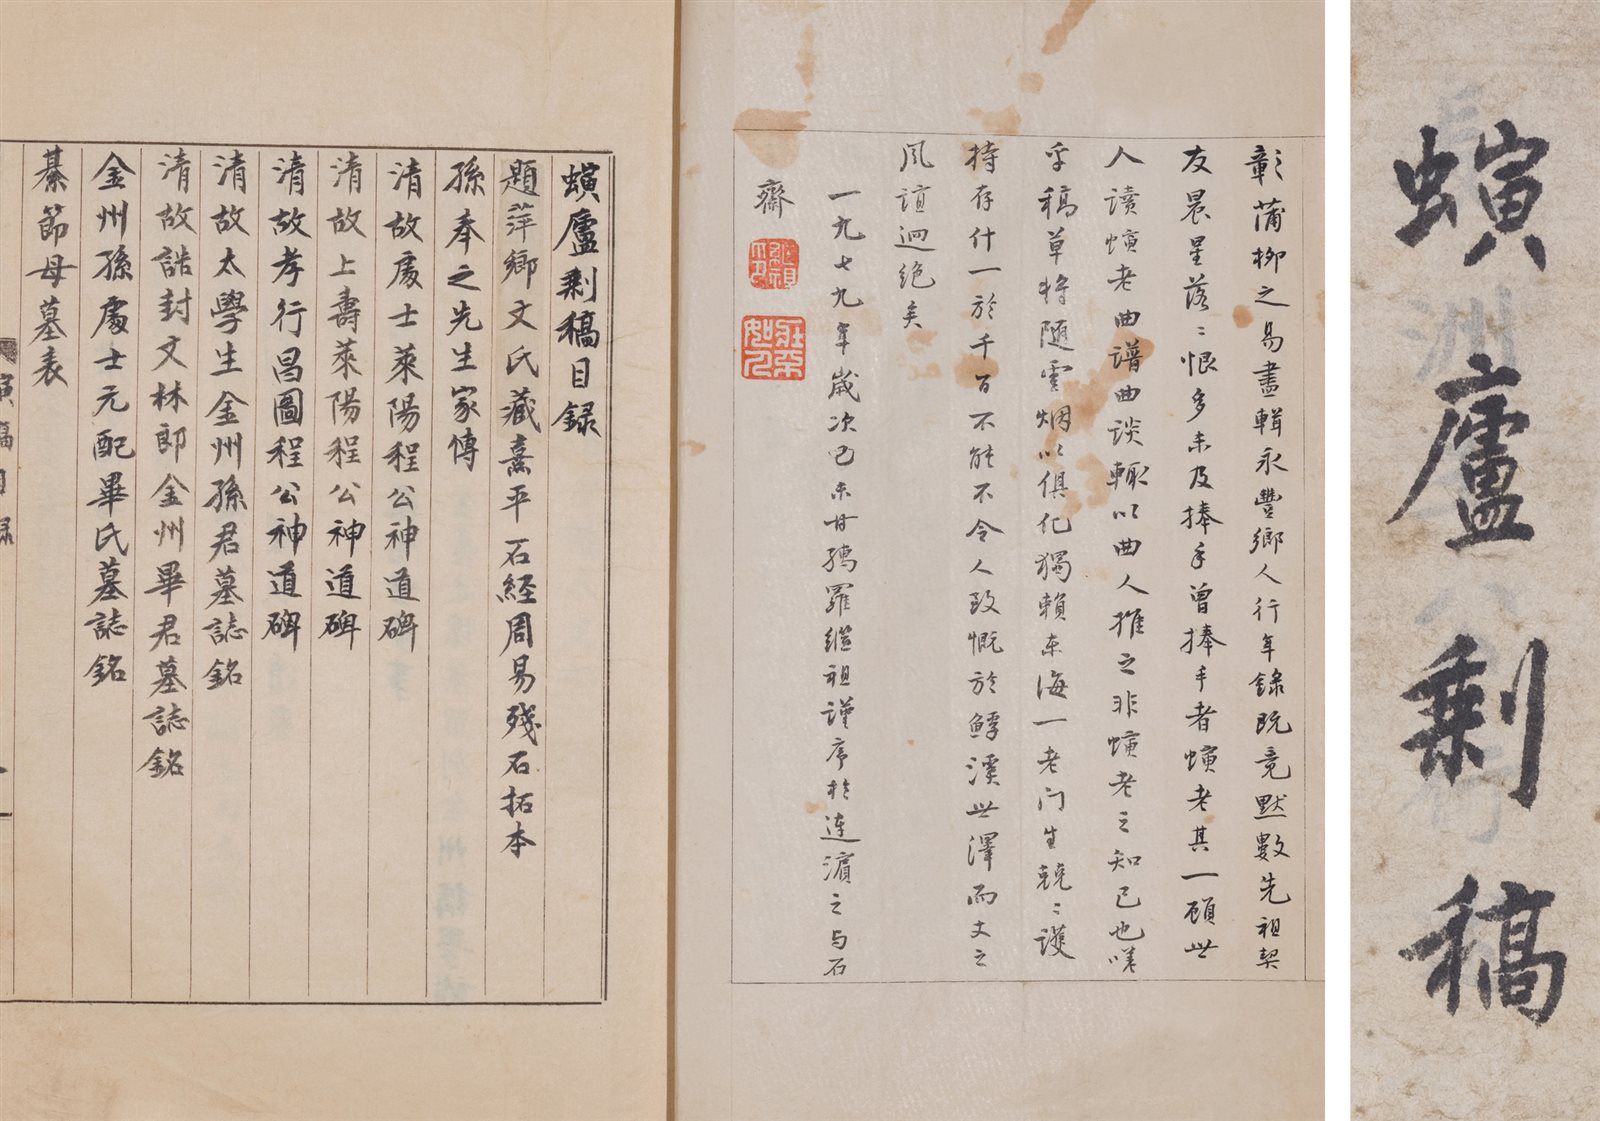 螾廬剩稿
彰蒲柳之易盡輯永豐鄉人行年錄既竟默數先祖契
友晨星落〻恨多未及捧手曾捧手者螾老其一顧世
人讀螾老曲譜曲談輒以曲人推之非螾老之知已也嗟
乎稿草將隨雲烟以俱化獨賴東海一老门生兢〻護
持存什一於千百不能不令人致慨於鱘溪世澤而丈之
風誼迥绝矣
一九七九年歲次己未甘孺羅繼祖謹序於連濱之与石
齋
螾廬剩稿目録
題萍鄉文氏藏熹平石經周易殘石拓本
孫奉之先生家傳
清故處士萊陽程公神道碑
清故上壽萊陽程公神道碑
清故孝行昌圖程公神道碑
清故太學生金州孫君墓誌銘
清故誥封文林郎金州畢君墓誌銘
金州孫處士元配畢氏墓誌銘
綦節母墓表